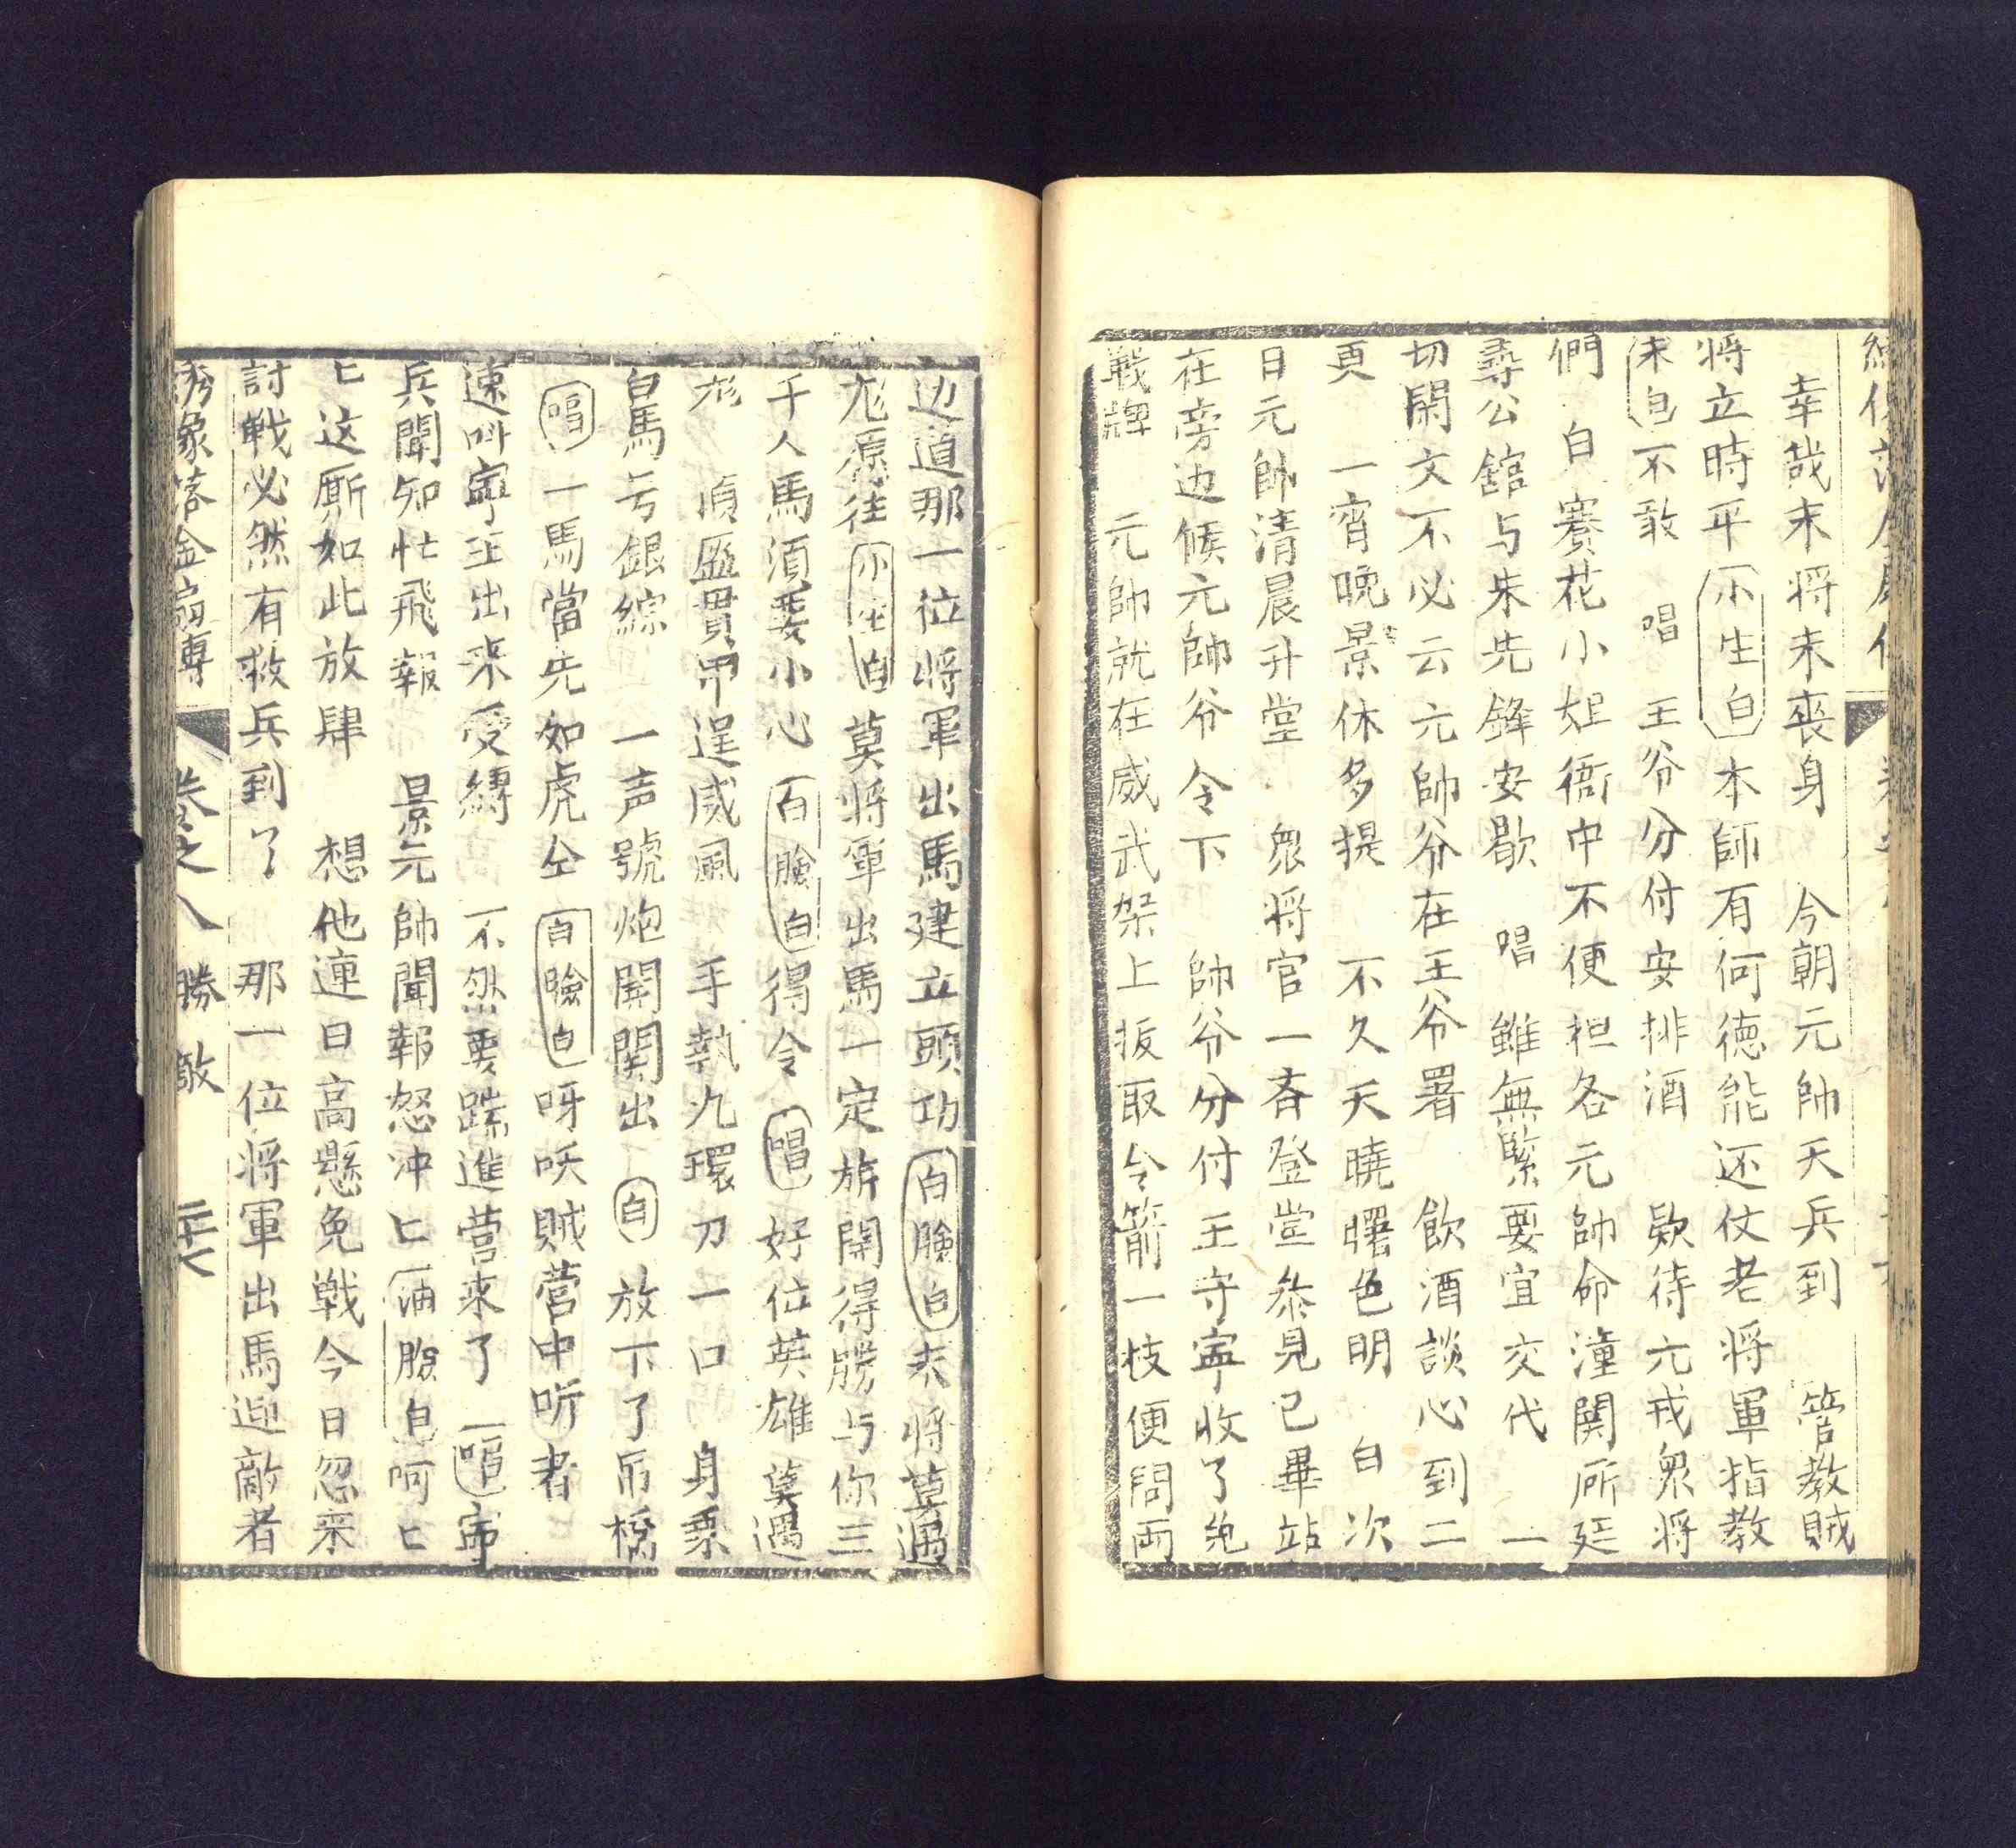 幸哉末将未喪身　今朝元帥天兵到　管教賊
将立時平　小生白　本師有何德能还仗老将軍指教
末白　不敢　唱　王爷分付安排酒　欵待元戎衆将
們　白　賽花小姐衙中不便袒各元帥命潼関所廷
尋公舘与朱先鋒安歇　唱　雖無緊要宜交代　一
切閑文不必云元帥爷在王爷署　飲酒談心到二
更　一宵晚景休多提　不久天曉曙色明　白　次
日元帥清晨升堂　衆将官一斉登堂叅見已畢站
在旁边候元帥爷令下　帥爷分付王守寧收了免
戰牌　元帥就在威武架上扳取令箭一枝便問両
边道那一位将軍出馬建立頭功　白臉白　末将莫遇
尨愿往　小生白　莫将軍出馬一定旂開得勝与你三
千人馬須要小心　白臉白　得令　唱　好位英雄莫遇
尨　頂盔貫甲逞威風　手執九環刀一口　身乗
白馬号銀綜　一声號炮開関出　白　放下了吊橋
唱　一馬當先如虎仝　白臉白　呀呔賊营中听者
速叫寧王出来受縛　不然要踹進营来了　唱　寧
兵聞知忙飛報　景元帥聞報怒冲匕　油臉白　呵匕
匕这厮如此放肆　想他連日高懸免戦今日忽来
討戦必然有救兵到了　那一位将軍出馬迎敵者
綉像落金扇傳　卷之八　勝敵　二十七